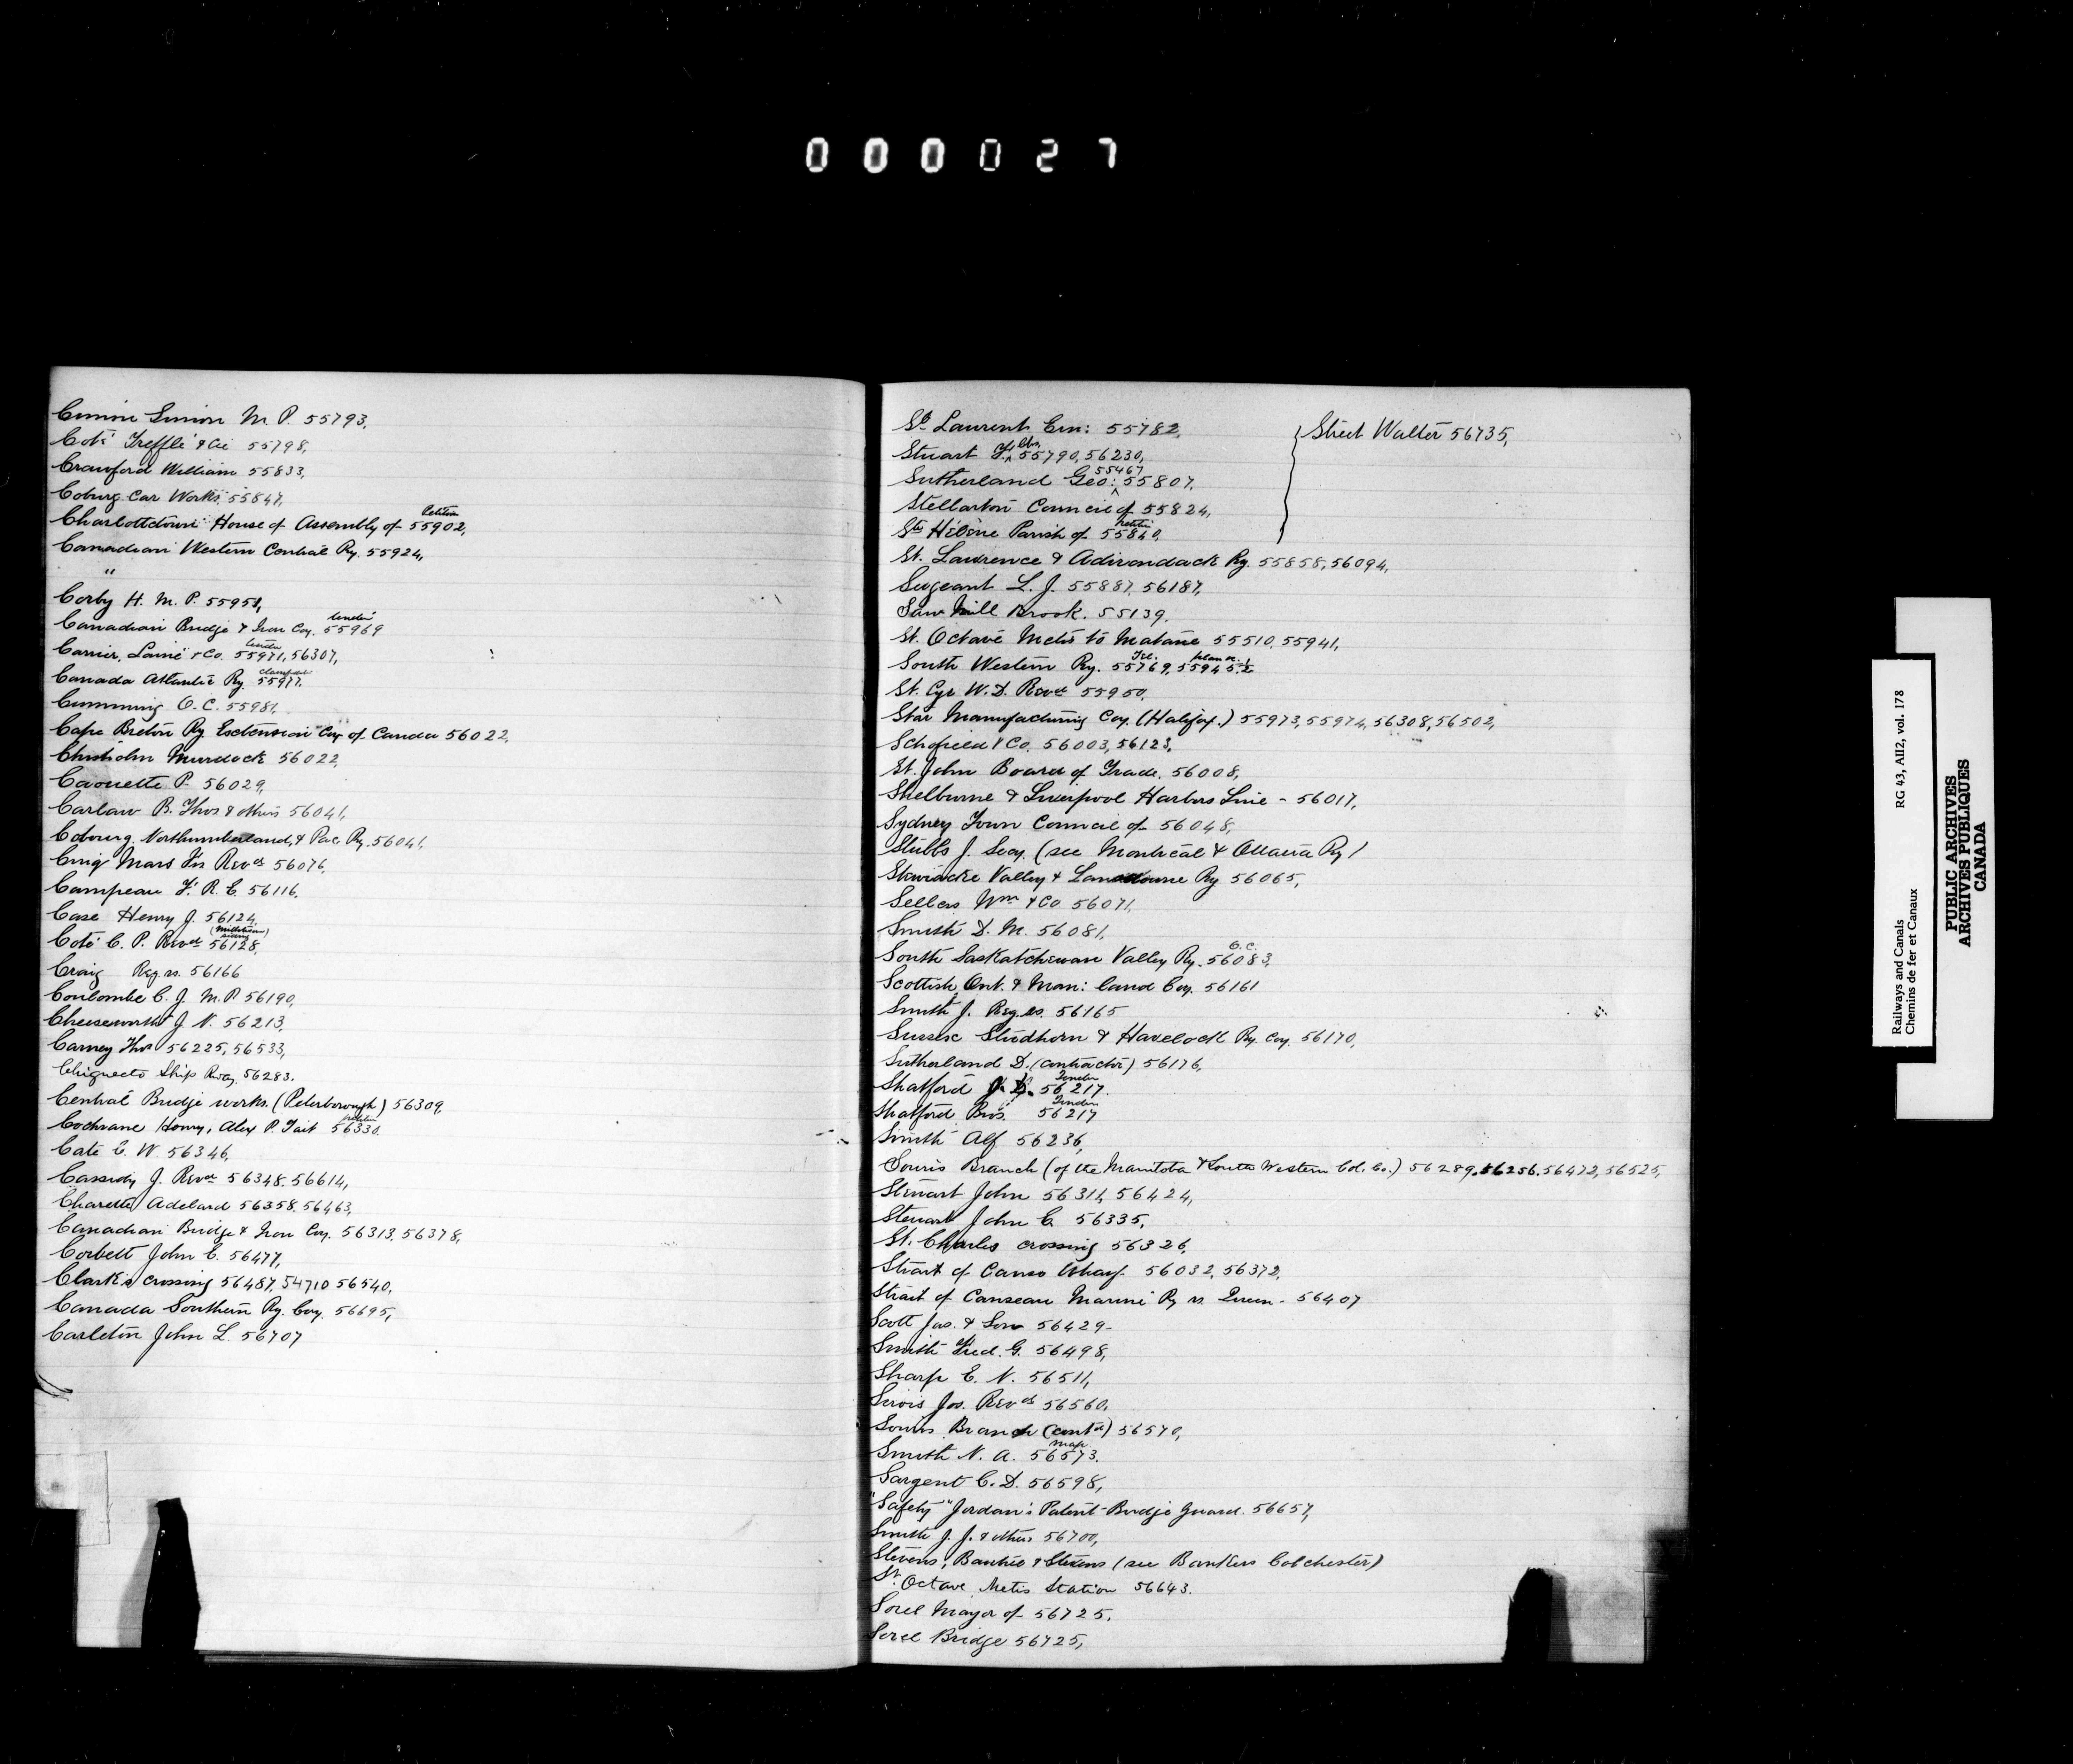 000027
Cimon Simon M. P. 55793,
Coté Treffle & Cie 55798,
Crawford William 55833,
Coburg Car Works, 55847,
Petition
Charlottetown House of Assembly of 55902,
Canadian Western Central Ry. 55924,
"
Corby H. M. P. 55958,
tender
Canadian Bridge & Iron Coy. 55969
tender
Carrier, Lainé & Co. 55971, 56307,
Canada Atlantic Ry. 55977.
Cumming O. C. 55981,
Cape Breton Ry Extension Coy of Canada 56022,
Chisholm Murdock 56022,
Caouette P. 56029,
Carlaw B. Thos & others 56041,
Cobourg, Northumberland, & Pac. Ry. 56041,
Craig Mars Vs Reves 56076,
Campeau F. R. E. 56116,
Case Henry J. 56124,
Coté C. P. Revd 56128,
Craig Reg. vs. 56166
Coulombe C. J. M. P. 56190,
Cheeseworth J. N. 56213,
Carney Thos 56225, 56533,
Chignecto Ship Rway 56283.
Central Bridge works. (Peterborough) 56309,
petition
Cochrane Henry, Alex P. Tait 56330.
Cate C. W. 56346,
Cassidy J. Revd 56348. 56614,
Charette Adelard 56358. 56463,
Canadian Bridge & Iron Coy. 56313, 56378,
Corbett John C. 56477,
Clark's crossing 56487, 54710 56540,
Canada Southern Ry. Coy. 56695,
Carleton John L. 56707
St. Laurent Em: 55782,
Street Walter 56735,
Stuart J. 55790, 56230,
55467
Sutherland Geo: 55807,
Stellarton Council of 55824,
petition
Ste Hélène Parish of 55840,
St. Lawrence & Adirondack Ry. 55858, 56094,
Sergeant L. J. 55887, 56187,
Saw Mill Brook. 55139.
St. Octave Metis to Matane 55510, 55941,
South Western Ry. 55769, 55945 ½
St. Cyr W. D. Revd 55950,
Star Manufacturing Coy. (Halifax.) 55973, 55974, 56308, 56502,
Schofield & Co. 56003, 56123,
St. John Board of Trade. 56008,
Shelburne & Liverpool Harbors Line - 56017,
Sydney Town Council of 56048,
Stubbs J. Secy. (see Montreal & Ottawa Ry)
Stewiacke Valley & Lansdowne Ry 56065,
Sellers Wm & Co 56071,
Smith D. M. 56081,
O. C.
South Saskatchewan Valley Ry. 56083,
Scottish Ont. & Man: land Coy. 56161
Smith J. Reg. vs. 56165
Sussex Studhorn & Havelock Ry. Coy. 56170,
Sutherland D. (contractor) 56176,
Tender
Shatford J. D. 56217.
Tender
Shatford Bros. 56217
Smith Alf 56236,
Souris Branch (of the Manitoba & South Western Col. Co.) 56289, 56256. 56472, 56525,
Stewart John 56311, 56424,
Stewart John C. 56335,
St. Charles crossing 56326,
Strait of Canso Wharf 56032, 56372,
Strait of Canseau Marine Ry vs. Queen - 56407
Scott Jas. & Son 56429-
Smith Fred. G. 56498,
Sharp E. N. 56511,
Sirois Jos. Revd 56560.
Souris Branch (contd) 56570,
map
Smith N. A. 56573.
Sargent C. D. 56598,
"Safety" Jordan's Patent Bridge Guard. 56657,
Smith J. J. & others 56700,
Stevens, Bankes & Stevens (see Bankers Colchester)
St. Octave Metis Station 56643.
Sorel Mayor of 56725,
Sorel Bridge 56725,
Railways and Canals RG 43, AII2, vol. 178
Chemins de fer et Canaux
PUBLIC ARCHIVES
ARCHIVES PUBLIQUES
CANADA